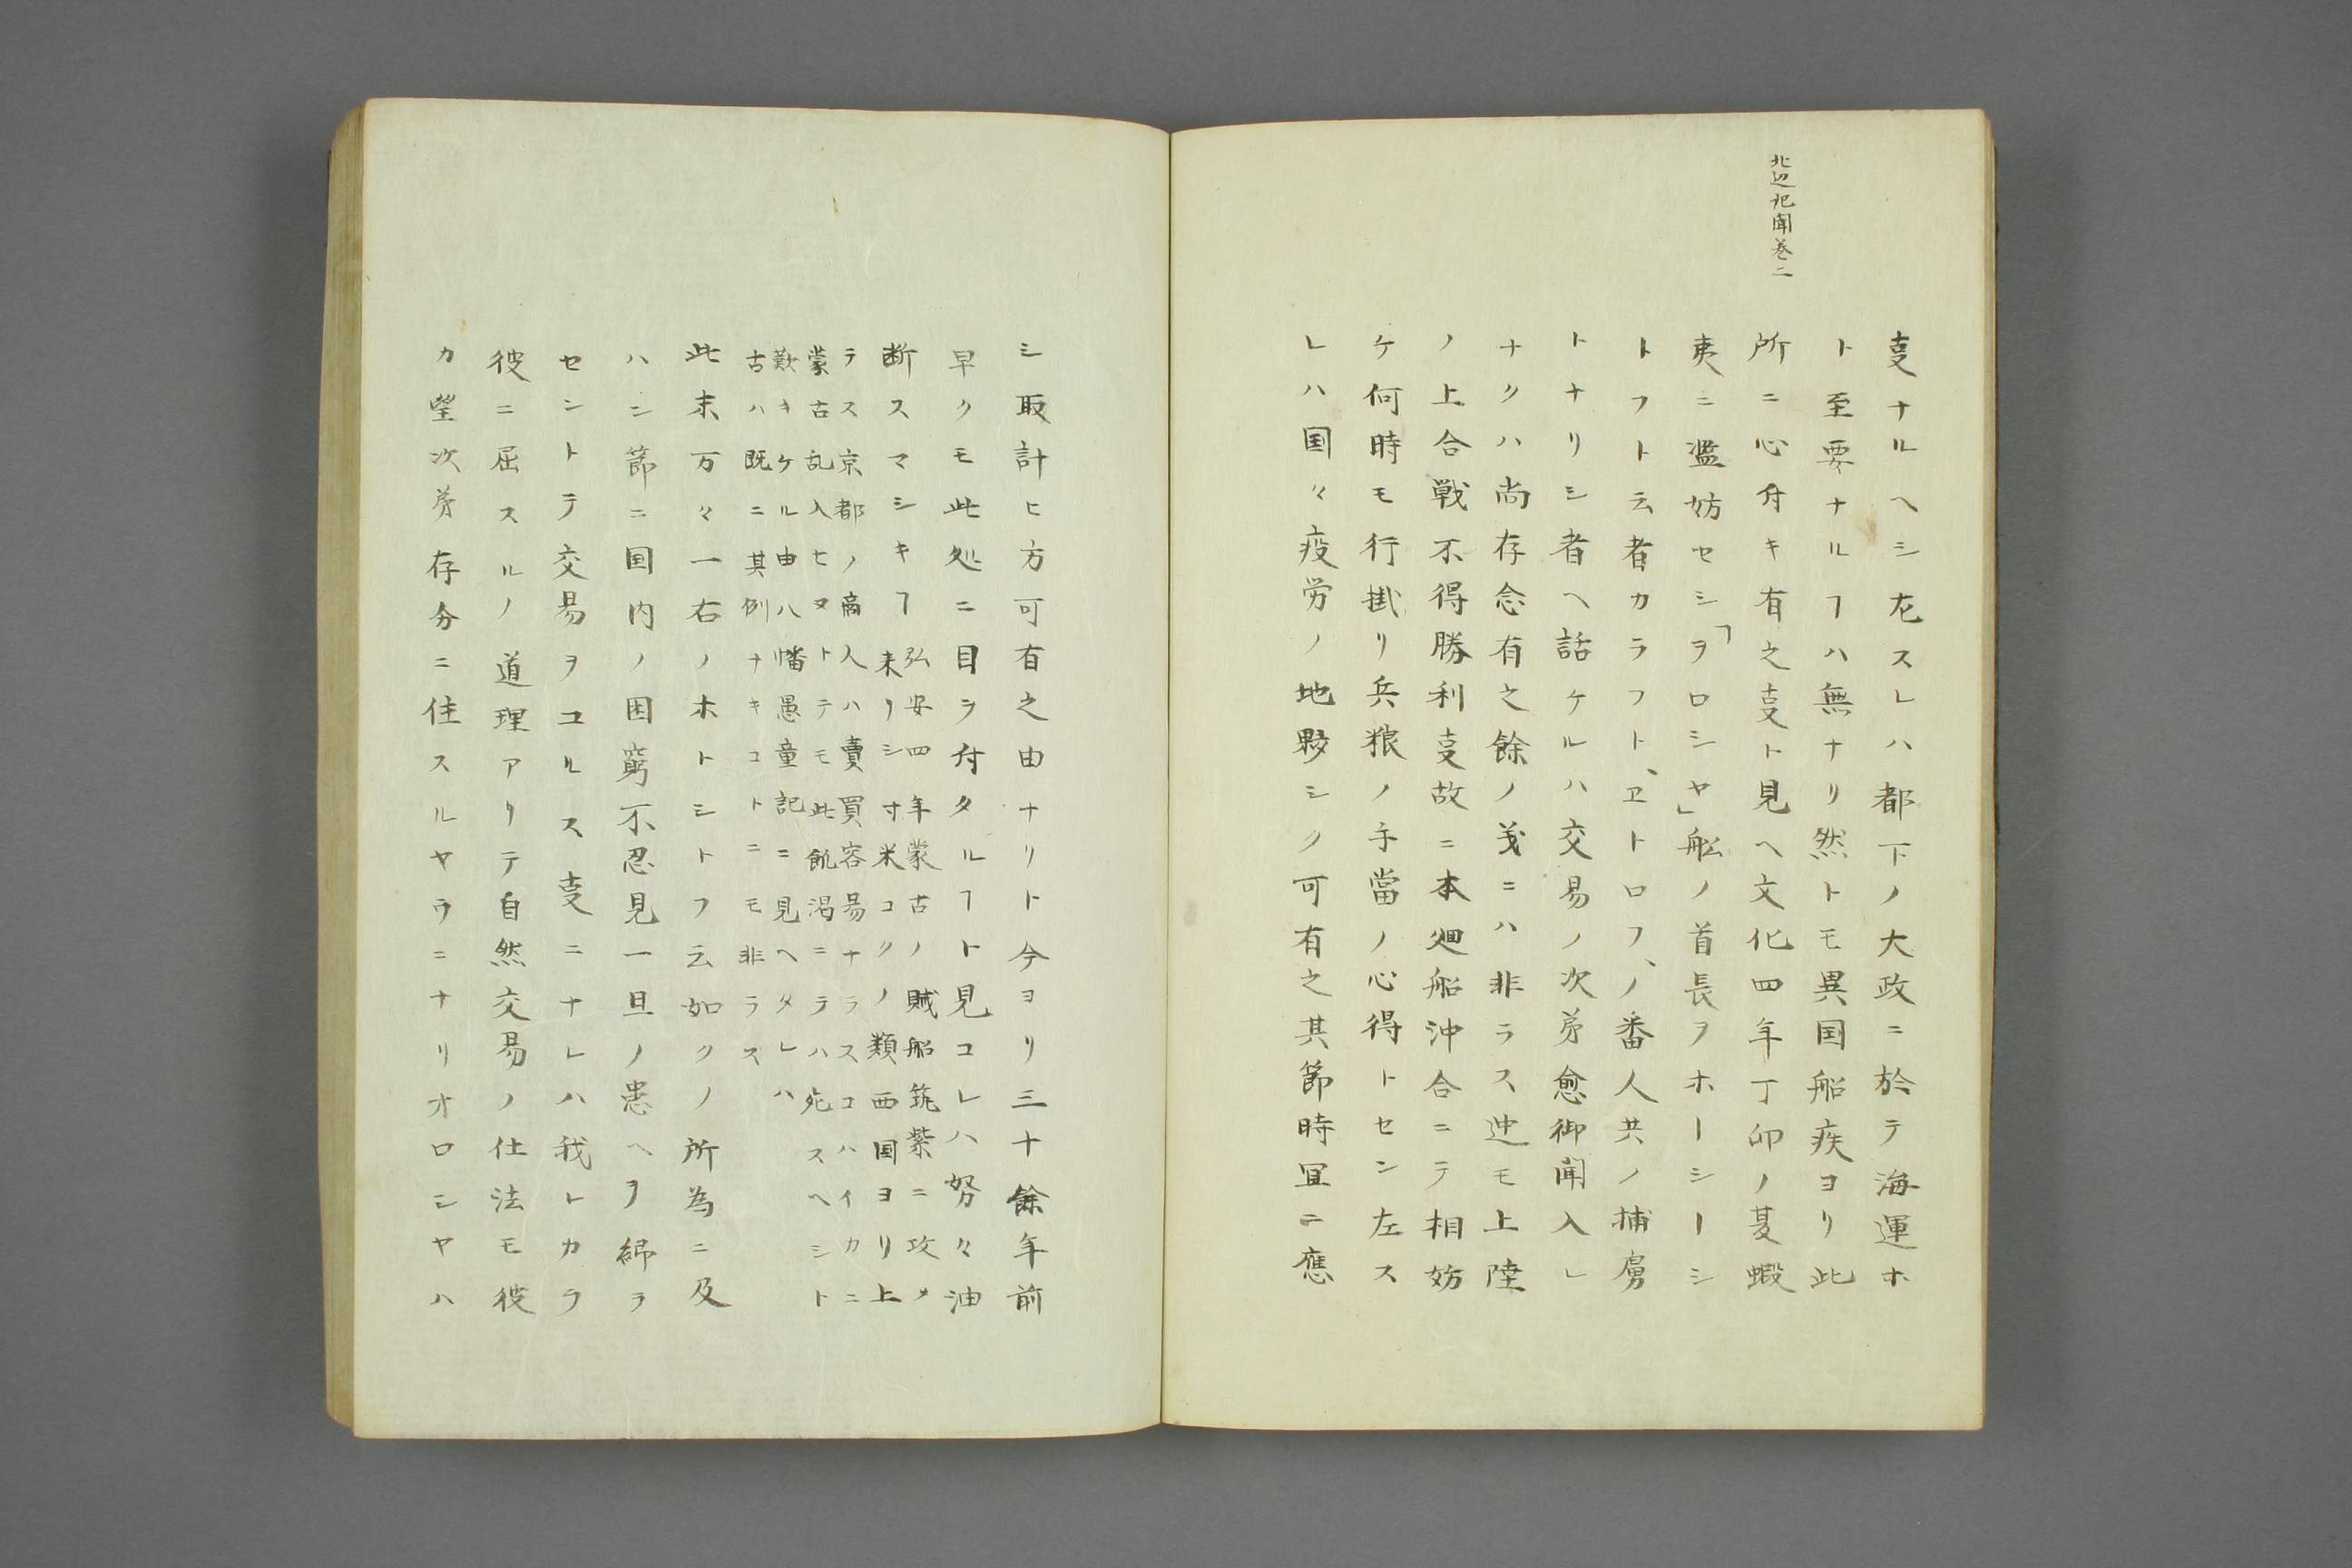 北辺紀聞巻二
叓ナルヘシ左スレハ都下ノ大政ニ於テ海運ホ
ト至要ナルヿハ無ナリ然トモ異国船疾ヨリ此
所ニ心付キ有之叓ト見ヘ文化四年丁卯ノ夏蝦
夷ニ濫妨セシ「ヲロシヤ」舩ノ首長ヲホーシーシ
トフト云者カラフト、ヱトロフ、ノ番人共ノ捕虜
トナリシ者ヘ話ケルハ交易ノ次第愈御聞入レ
ナクハ尚存念有之餘ノ義ニハ非ラス迚モ上陸
ノ上合戦不得勝利叓故ニ本廻船沖合ニテ相妨
ケ何時モ行掛リ兵粮ノ手當ノ心得トセン左ス
レハ国々疫労ノ地夥シク可有之其節時宜ニ應
シ取計ヒ方可有之由ナリト今ヨリ三十餘年前
早クモ此処ニ目ヲ付タルヿト見コレハ努々油
断スマシキヿ
弘安四年蒙古ノ賊船筑紫ニ攻メ
来リシ寸米コクノ類西国ヨリ上
ラス京都ノ商人ハ賣買容昜ナラスコハイカニ
蒙古乱入セヌトテモ此飢渇ニテハ死スヘシト
歎キケル由八幡愚童記ニ見ヘタレハ
古ハ既ニ其例ナキコトニモ非ラス
此末万々一右ノホトシトフ云如クノ所為ニ及
ハン節ニ国内ノ困窮不忍見一旦ノ患ヘヲ綿ラ
セントテ交昜ヲユルス叓ニナレハ我レカラ
彼ニ屈スルノ道理アリテ自然交昜ノ仕法モ彼
カ望次第存分ニ住スルヤウニナリオロシヤハ